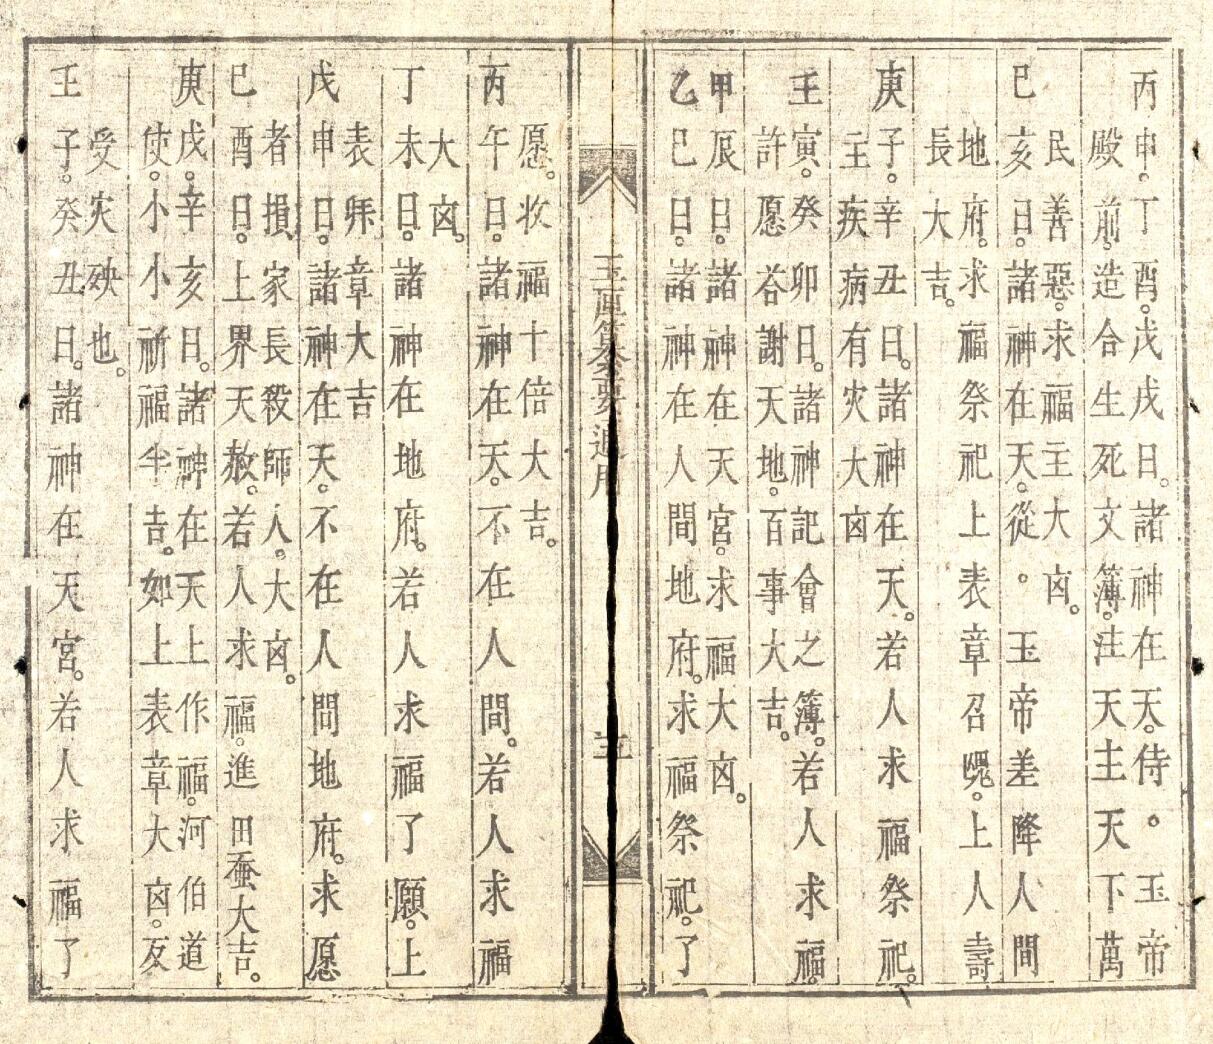 丙申。丁酉。戊戌日。諸神在天。侍。玉帝
殿前。造合生死文簿。注天主天下萬
民善惡。求福主大凶。
己亥日。諸神在天。從。玉帝差降人間
地府。求福祭祀上表章召魂。上人壽
長大吉。
庚子。辛丑日。諸神在天。若人求福祭祀。
主疾病有灾大凶
壬寅。癸卯日。諸神記會之簿。若人求福。
許愿答謝天地。百事大吉。
甲辰日。諸神在天宮。求福大凶。
乙巳日。諸神在人間地府。求福祭祀。了
玉匣纂要 通用
愿。收福十倍大吉。
丙午日。諸神在天。不在人間。若人求福
大凶。
丁未日。諸神在地府。若人求福了願。上
表拜章大吉
戊申日。諸神在天。不在人間地府。求愿
者損家長殺師人。大凶。
己酉日。上界天赦。若人求福。進田蚕大吉。
庚戌。辛亥日。諸神在天上作福。河伯道
使。小小祈福半吉。如上表章大凶。反
受灾殃也。
壬子。癸丑日。諸神在天宮。若人求福了